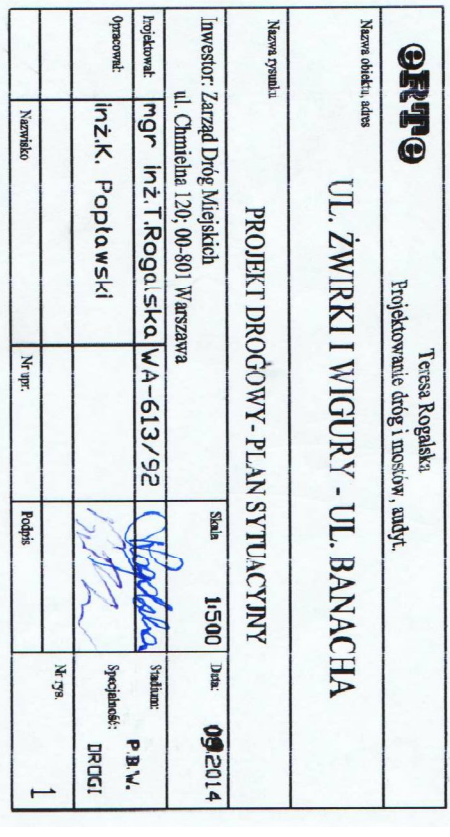 eRTe
Teresa Rogalska
Projektowanie dróg i mostów, audyt.
Nazwa obiektu, adres
UL. ŻWIRKI I WIGURY - UL. BANACHA
Nazwa rysunku
PROJEKT DROGOWY- PLAN SYTUACYJNY
Inwestor: Zarząd Dróg Miejskich
ul. Chmielna 120; 00-801 Warszawa
Skala 1:500
Data: 09.2014
Projektował: mgr inż.T.Rogalska WA-613/92
Rogalska
Stadium: P.B.W.
Opracował: inż.K. Popławski
Specjalność: DROGI
Nazwisko Nr upr. Podpis
Nr rys. 1